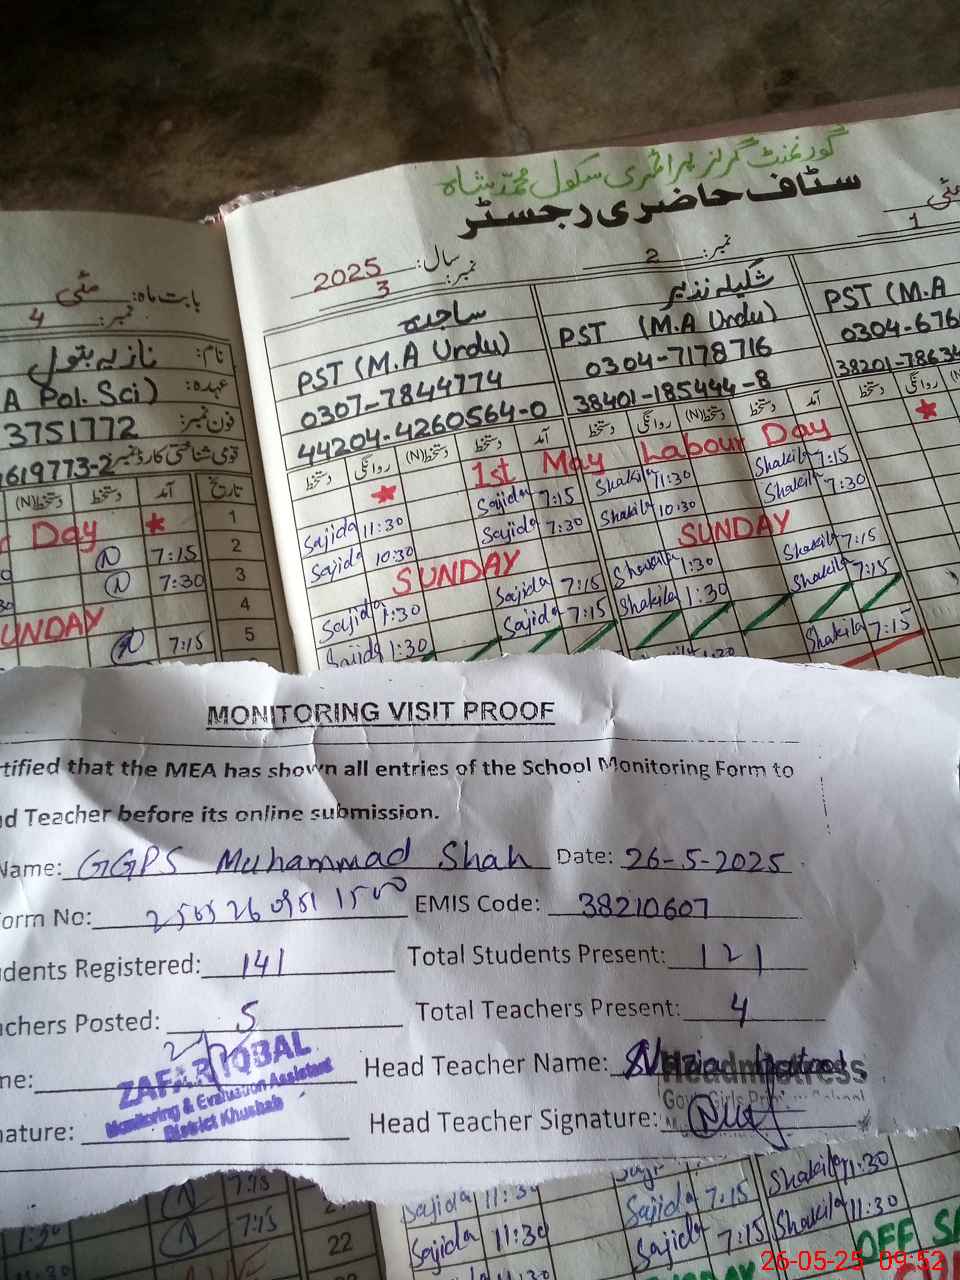 گورنمنٹ گرلز پرائمری سکول محمد شاہ
سٹاف حاضری رجسٹر
بابت ماہ: مئی
نمبر: 4
نام: نازیہ بتول
عہدہ: A Pol. Sci)
فون نمبر: 3751772
قومی شناختی کارڈ نمبر 619773-2
دستخط(N) دستخط آمد تاریخ
Day ★ 1
7:15 2
7:30 3
UNDAY 4
7:15 5
سال: 2025
نمبر: 3
ساجدہ
PST (M.A Urdu)
0307-7844774
44204-4260564-0
دستخط روانگی دستخط(N) دستخط آمد
نمبر: 2
شکیلہ نذیر
PST (M.A Urdu)
0304-7178716
38401-185444-8
دستخط روانگی دستخط(N) دستخط آمد
مئی
1
PST (M.A
0304-676
38201-78634
دستخط روانگی
★
★ 1st May Labour Day
Sajida 11:30 Sajida 7:15 Shakila 11:30 Shakila 7:15
Sajida 10:30 Sajida 7:30 Shakila 10:30 Shakila 7:30
SUNDAY SUNDAY
Sajida 1:30 Sajida 7:15 Shakila 1:30 Shakila 7:15
Sajida 1:30 Sajida 7:15 Shakila 1:30 Shakila 7:15
Shakila 7:15
MONITORING VISIT PROOF
rtified that the MEA has shown all entries of the School Monitoring Form to
d Teacher before its online submission.
Name: GGPS Muhammad Shah Date: 26-5-2025
orm No: EMIS Code: 38210607
dents Registered: 141 Total Students Present: 121
achers Posted: 5 Total Teachers Present: 4
me: Head Teacher Name: Nazia Batool
ZAFAR IQBAL
Monitoring & Evaluation Assistant
District Khushab
Headmistress
Govt. Girls Primary School
nature: Head Teacher Signature:
7:15
11:30 7:15 22
Sajida 11:30 Sajida 7:15 Shakila 11:30
Sajida 11:30 Sajida 7:15 Shakila 11:30
OFF SA
26-05-25 09:52